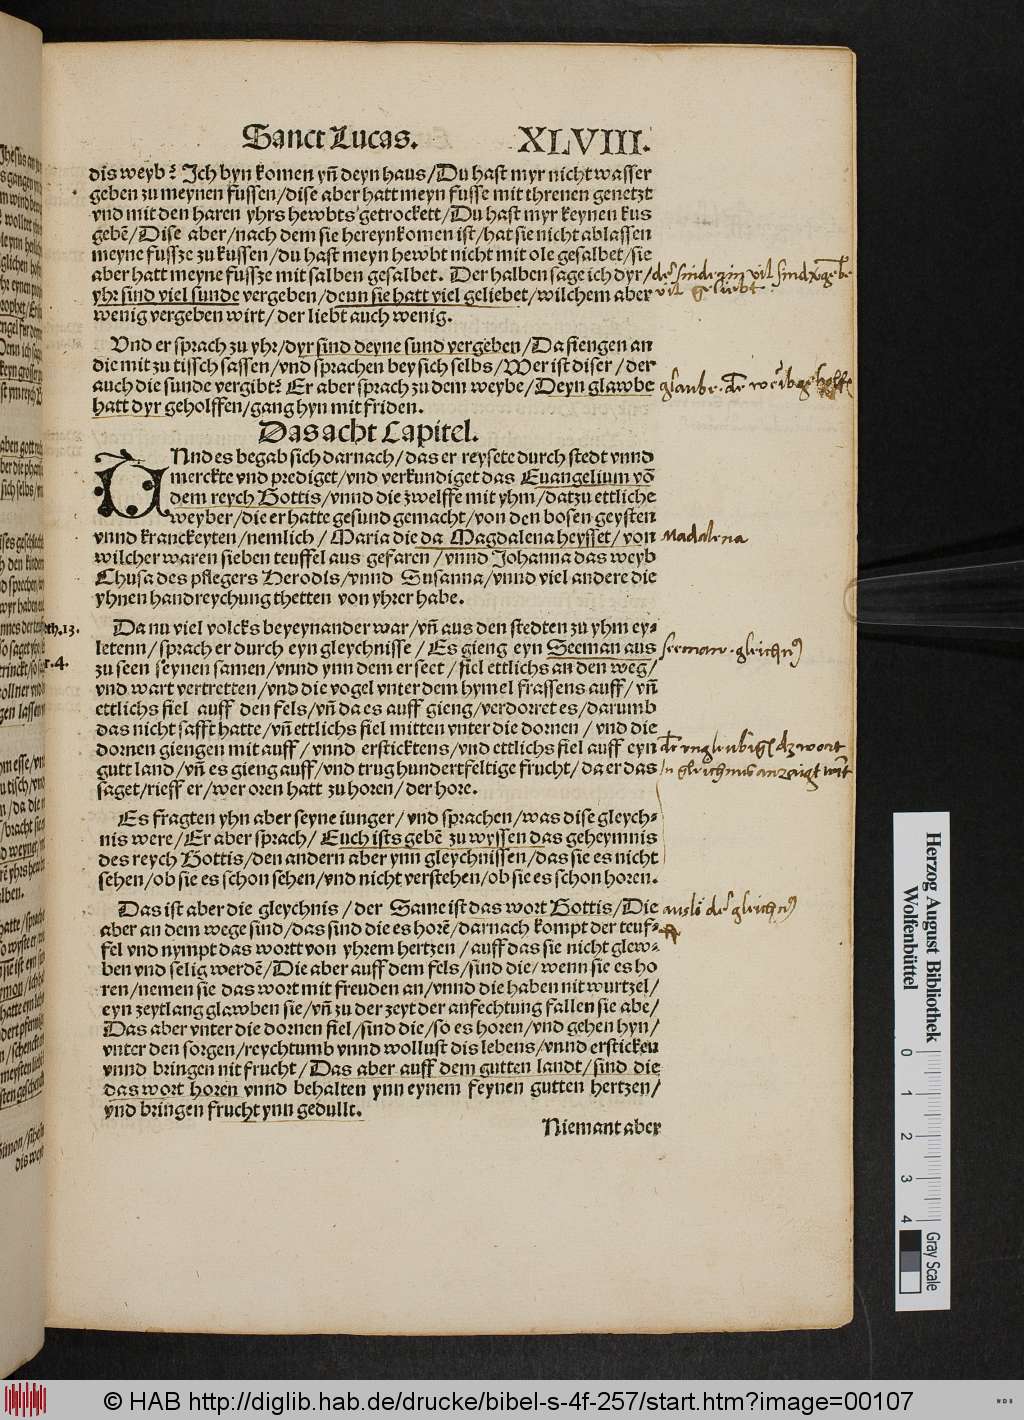 Sanct Lucas. XLVIII.
dis weyb? Ich byn komen yñ deyn haus/Du hast myr nicht wasser
geben zu meynen fussen/dise aber hatt meyn fusse mit threnen genetzt
vnd mit den haren yhrs hewbts getrockett/Du hast myr keynen kus
gebẽ/Dise aber/nach dem sie hereynkomen ist/hat sie nicht ablassen
meyne fussze zu kussen/du hast meyn hewbt nicht mit ole gesalbet/sie
aber hatt meyne fussze mit salben gesalbet. Der halben sage ich dyr/
yhr sind viel sunde vergeben/denn sie hatt viel geliebet/wilchem aber
wenig vergeben wirt/der liebt auch wenig.
Vnd er sprach zu yhr/dyr sind deyne sund vergeben/Da fiengen an
die mit zu tissch sassen/vnd sprachen bey sich selbs/Wer ist diser/der
auch die sunde vergibt? Er aber sprach zu dem weybe/Deyn glawbe
hatt dyr geholffen/gang hyn mit friden.
Das acht Capitel.
VNnd es begab sich darnach/das er reysete durch stedt vnnd
merckte vnd prediget/vnd verkundiget das Euangelium võ
dem reych Gottis/vnnd die zwelffe mit yhm/datzu ettliche
weyber/die er hatte gesund gemacht/von den bosen geysten
vnnd kranckeyten/nemlich/Maria die da Magdalena heysset/von
wilcher waren sieben teuffel aus gefaren/vnnd Johanna das weyb
Chusa des pflegers Herodis/vnnd Susanna/vnnd viel andere die
yhnen handreychung thetten von yhrer habe.
Da nu viel volcks beyeynander war/vñ aus den stedten zu yhm ey-
letenn/sprach er durch eyn gleychnisse/Es gieng eyn Seeman aus
zu seen seynen samen/vnnd ynn dem er seet/fiel ettlichs an den weg/
vnd wart vertretten/vnd die vogel vnter dem hymel frassens auff/vñ
ettlichs fiel auff den fels/vñ da es auff gieng/verdorret es/darumb
das nicht safft hatte/vñ ettlichs fiel mitten vnter die dornen/vnd die
dornen giengen mit auff/vnnd ersticktens/vnd ettlichs fiel auff eyn
gutt land/vñ es gieng auff/vnd trug hundertfeltige frucht/da er das
saget/rieff er/wer oren hatt zu horen/der hore.
Es fragten yhn aber seyne iunger/vnd sprachen/was dise gleych-
nis were/Er aber sprach/Euch ists gebẽ zu wyssen das geheymnis
des reych Gottis/den andern aber ynn gleychnissen/das sie es nicht
sehen/ob sie es schon sehen/vnd nicht verstehen/ob sie es schon horen.
Das ist aber die gleychnis/der Same ist das wort Gottis/Die
aber an dem wege sind/das sind die es horẽ/darnach kompt der teuf-
fel vnd nympt das wortt von yhrem hertzen/auff das sie nicht glew-
ben vnd selig werdẽ/Die aber auff dem fels/sind die/wenn sie es ho
ren/nemen sie das wort mit freuden an/vnnd die haben nit wurtzel/
eyn zeytlang glawben sie/vñ zu der zeyt der anfechtung fallen sie abe/
Das aber vnter die dornen fiel/sind die/so es horen/vnd gehen hyn/
vnter den sorgen/reychtumb vnnd wollust dis lebens/vnnd ersticken
vnnd bringen nit frucht/Das aber auff dem gutten landt/sind die
das wort horen vnnd behalten ynn eynem feynen gutten hertzen/
vnd bringen frucht ynn gedullt.
Niemant aber
vil geliebt
Madalena
seeman. gleichnꝰ
in gleichnus anzaigt wirt
th.13.
r.4.
Herzog August Bibliothek
Wolfenbüttel
0 1 2 3 4
Gray Scale
© HAB http://diglib.hab.de/drucke/bibel-s-4f-257/start.htm?image=00107